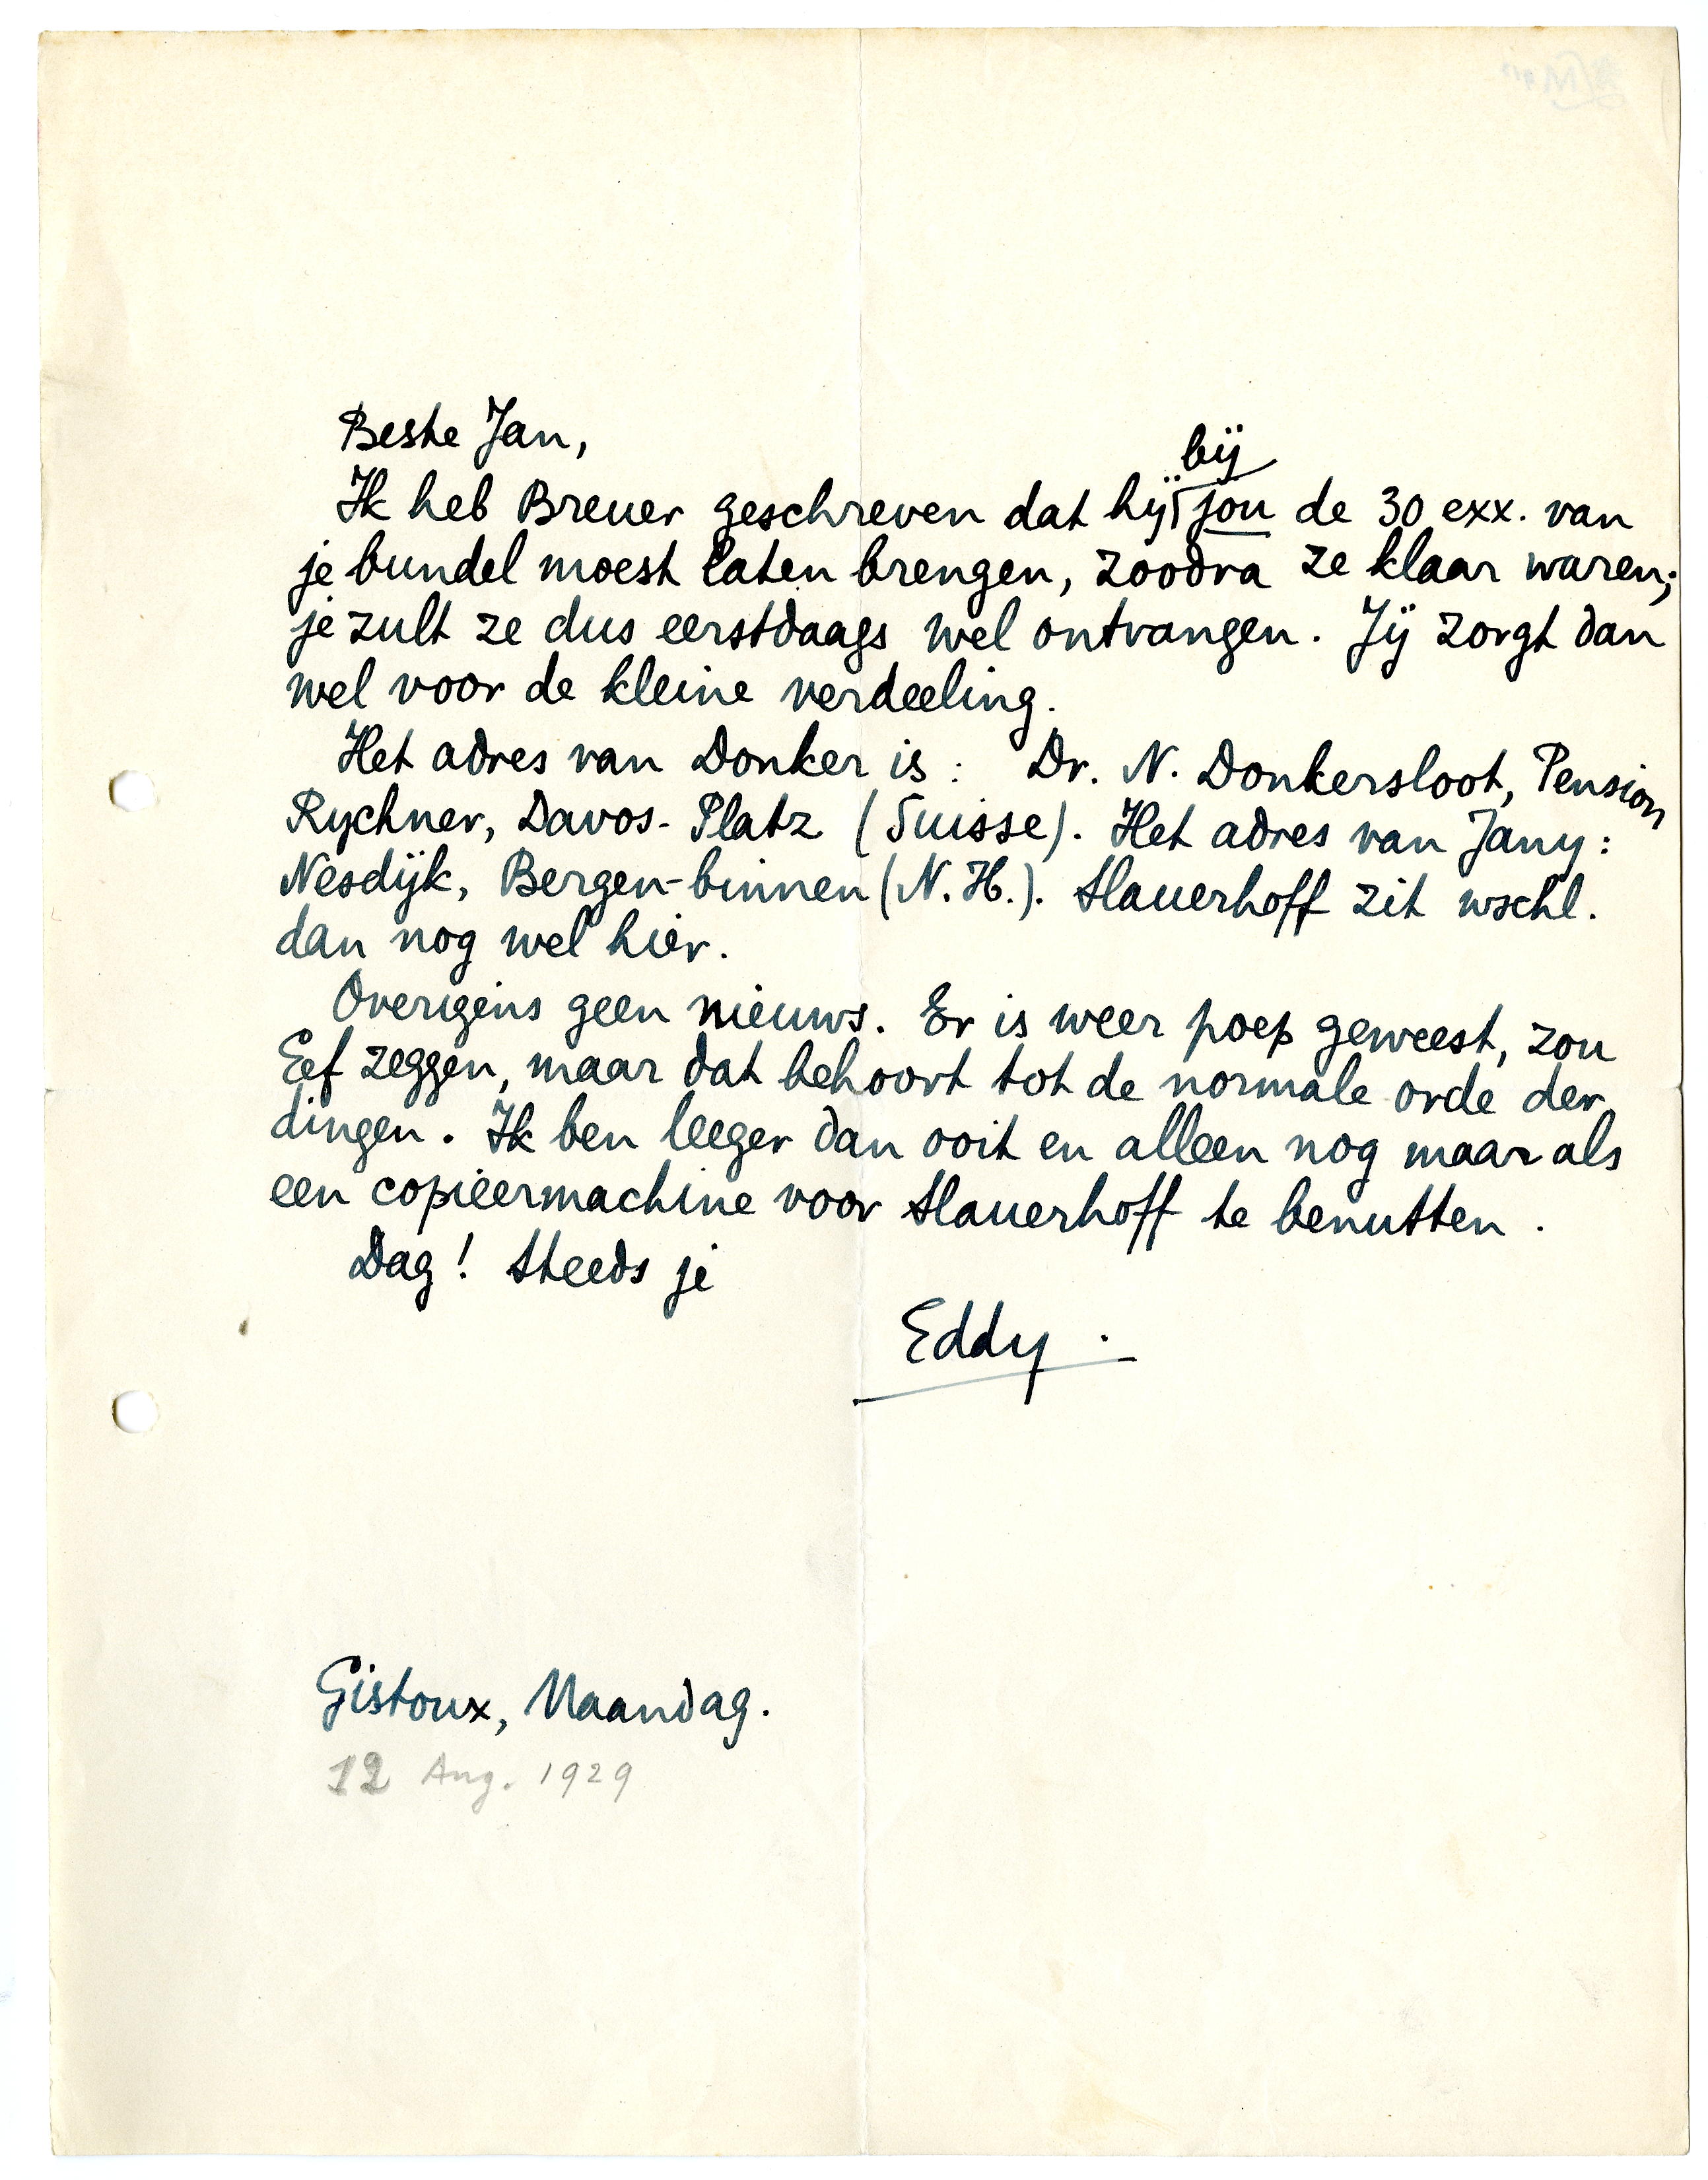 Beste Jan,
Ik heb Breuer geschreven dat hij bij jou de 30 exx. van
je bundel moest laten brengen, zoodra ze klaar waren;
je zult ze dus eerstdaags wel ontvangen. Jij zorgt dan
wel voor de kleine verdeeling.
Het adres van Donker is: Dr. N. Donkersloot, Pension
Rychner, Davos-Platz (Suisse). Het adres van Jany:
Nesdijk, Bergen-binnen (N.H.). Slauerhoff zit wschl.
dan nog wel hier.
Overigens geen nieuws. Er is weer poep geweest, zou
Eef zeggen, maar dat behoort tot de normale orde der
dingen. Ik ben leeger dan ooit en alleen nog maar als
een copieermachine voor Slauerhoff te benutten.
Dag! Steeds je
Eddy.
Gistoux, Maandag.
12 Aug. 1929